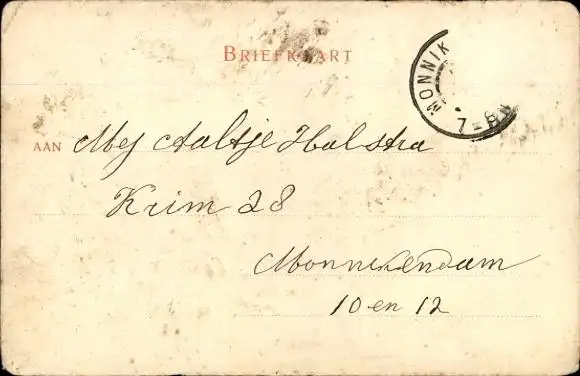 BRIEFKAART
MONNIK
7-8
AAN Mej Aaltje Halstra
Krim 28
Monnikendam
10 en 12